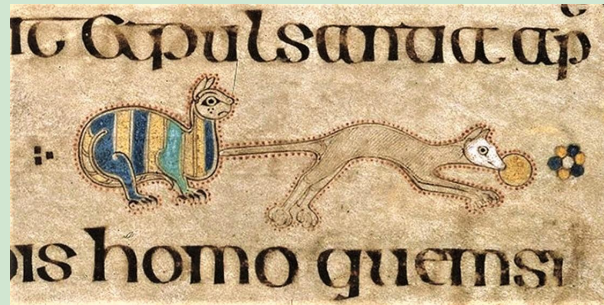 it & pulsanti ap
is homo quemsi